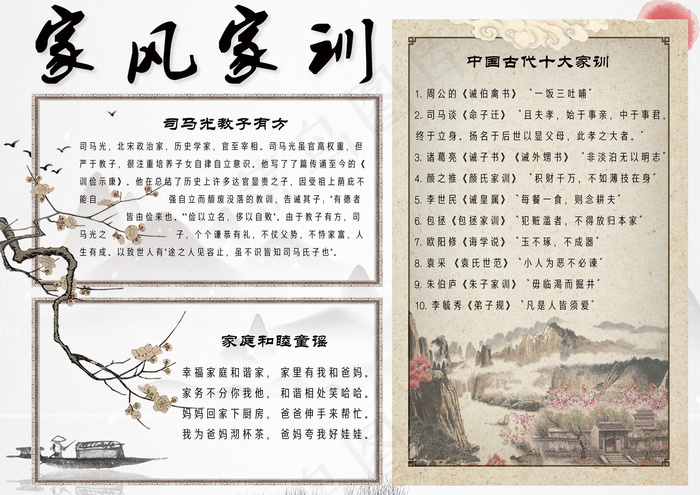 家风家训
司马光教子有方
司马光，北宋政治家，历史学家，官至宰相。司马光虽官高权重，但
严于教子，很注重培养子女自律自立意识。他写了了篇传诵至今的《
训俭示康》。他在总结了历史上许多达官显贵之子，因受祖上荫庇不
能自强自立而颓废没落的教训，告诫其子，"有德者
皆由俭来也。""俭以立名，侈以自败"。由于教子有方，司
马光之子，个个谦恭有礼，不仗父势，不恃家富，人
生有成。以致世人有"途之人见容止，虽不识皆知司马氏子也"。
家庭和睦童谣
幸福家庭和谐家，家里有我和爸妈。
家务不分你我他，和谐相处笑哈哈。
妈妈回来下厨房，爸爸伸手来帮忙。
我为爸妈沏杯茶，爸妈夸我好娃娃。
中国古代十大家训
1. 周公的《诫伯禽书》"一饭三吐哺"
2. 司马谈《命子迁》"且夫孝，始于事亲，中于事君，
终于立身。扬名于后世以显父母，此孝之大者。"
3. 诸葛亮《诫子书》《诫外甥书》"非淡泊无以明志"
4. 颜之推《颜氏家训》"积财千万，不如薄技在身"
5. 李世民《诫皇属》"每餐一食，则念耕夫"
6. 包拯《包拯家训》"犯赃滥者，不得放归本家"
7. 欧阳修《诲学说》"玉不琢，不成器"
8. 袁采《袁氏世范》"小人为恶不必谏"
9. 朱伯庐《朱子家训》"毋临渴而掘井"
10. 李毓秀《弟子规》"凡是人皆须爱"